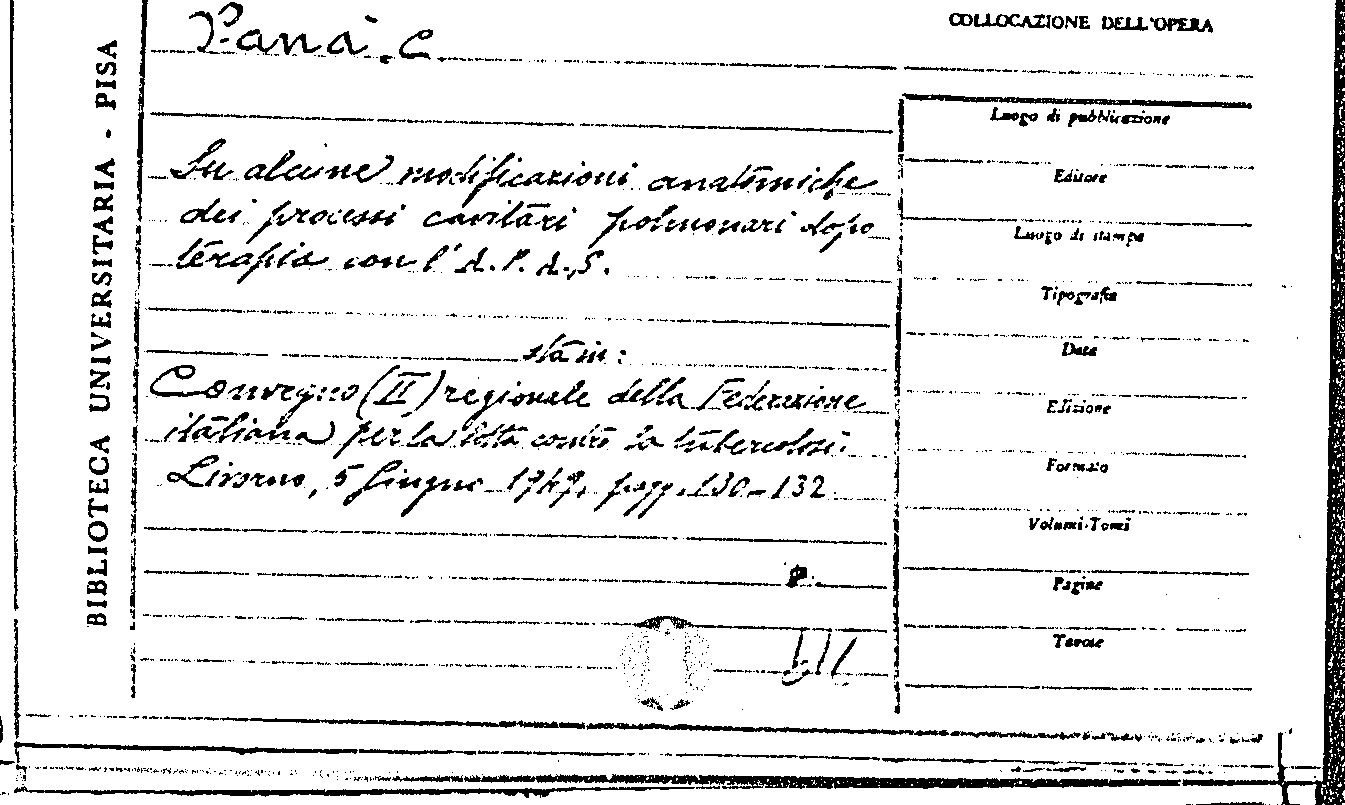 Panà C.
COLLOCAZIONE DELL'OPERA
BIBLIOTECA UNIVERSITARIA - PISA
Su alcune modificazioni anatomiche
dei processi cavitari polmonari dopo
terapia con l'A.P.A.S.
sta in:
Convegno (II) regionale della Federazione
italiana per la lotta contro la tubercolosi.
Livorno, 5 Giugno 1949, pagg. 130-132
Luogo di pubblicazione
Editore
Luogo di stampa
Tipografia
Data
Edizione
Formato
Volumi-Tomi
Pagine
Tavole